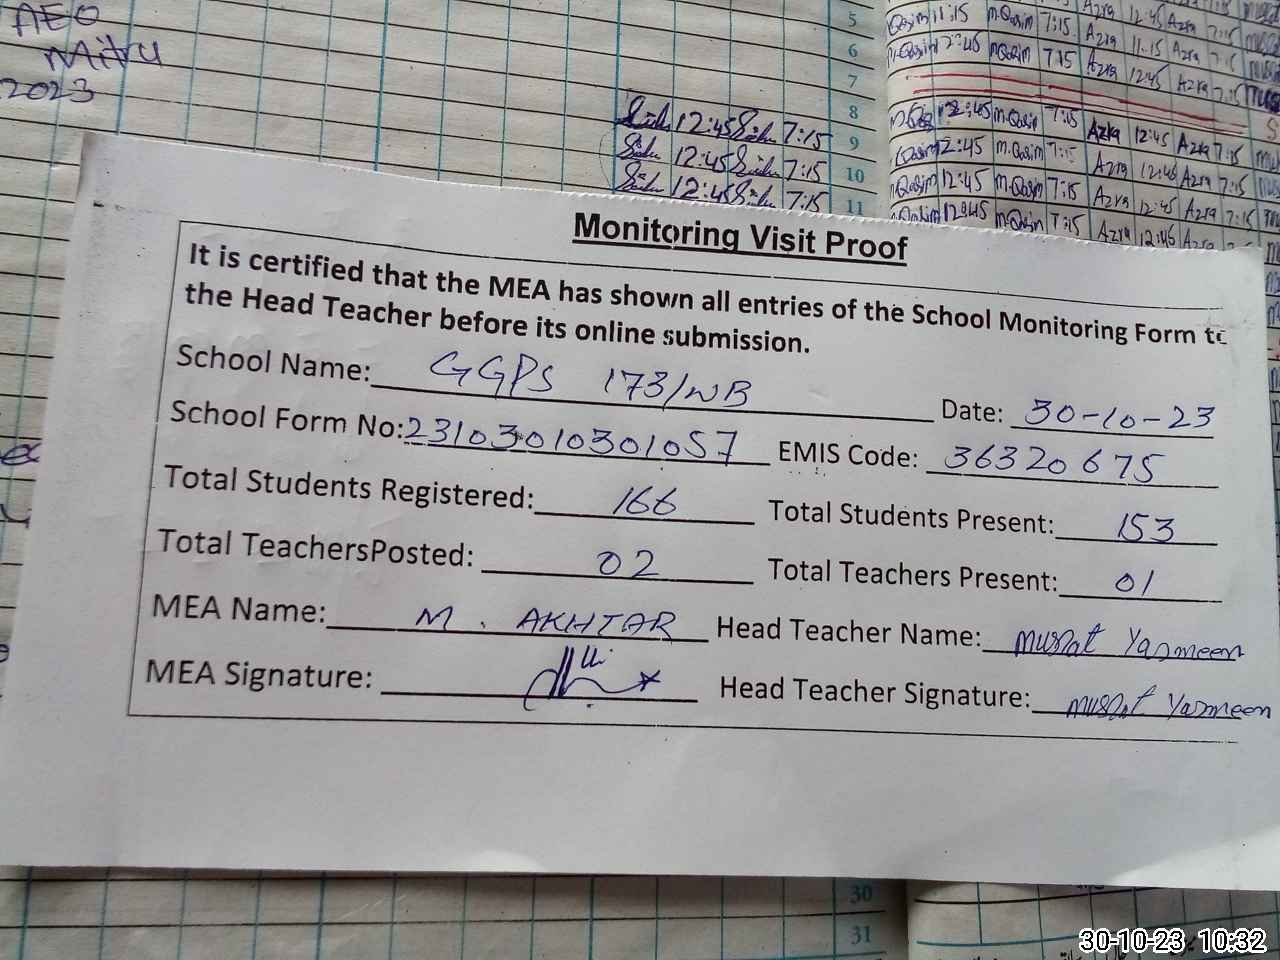 AEO
Mitru
2023
12:45 7:15
12:45 7:15
12:45 7:15
5
6
7
8
9
10
11
11:15 m.Qasim 7:15 Azra 12:45 Azra 7:15
12:45 m.Qasim 7:15 Azra 11:15 Azra 7:15
Azra 12:45 Azra 7:15
12:45 m.Qasim 7:15 Azra 12:45 Azra 7:15
Qasim 12:45 m.Qasim 7:15 Azra 12:45 Azra 7:15
m.Qasim 12:45 m.Qasim 7:15 Azra 12:45 Azra 7:15
m.Qasim 7:15 Azra 12:45 Azra
Monitoring Visit Proof
It is certified that the MEA has shown all entries of the School Monitoring Form to
the Head Teacher before its online submission.
School Name: GGPS 173/WB Date: 30-10-23
School Form No: 23103010301057 EMIS Code: 36320675
Total Students Registered: 166 Total Students Present: 153
Total TeachersPosted: 02 Total Teachers Present: 01
MEA Name: M. AKHTAR Head Teacher Name: Musrat Yasmeen
MEA Signature: Head Teacher Signature: Musrat Yasmeen
30
31
30-10-23 10:32